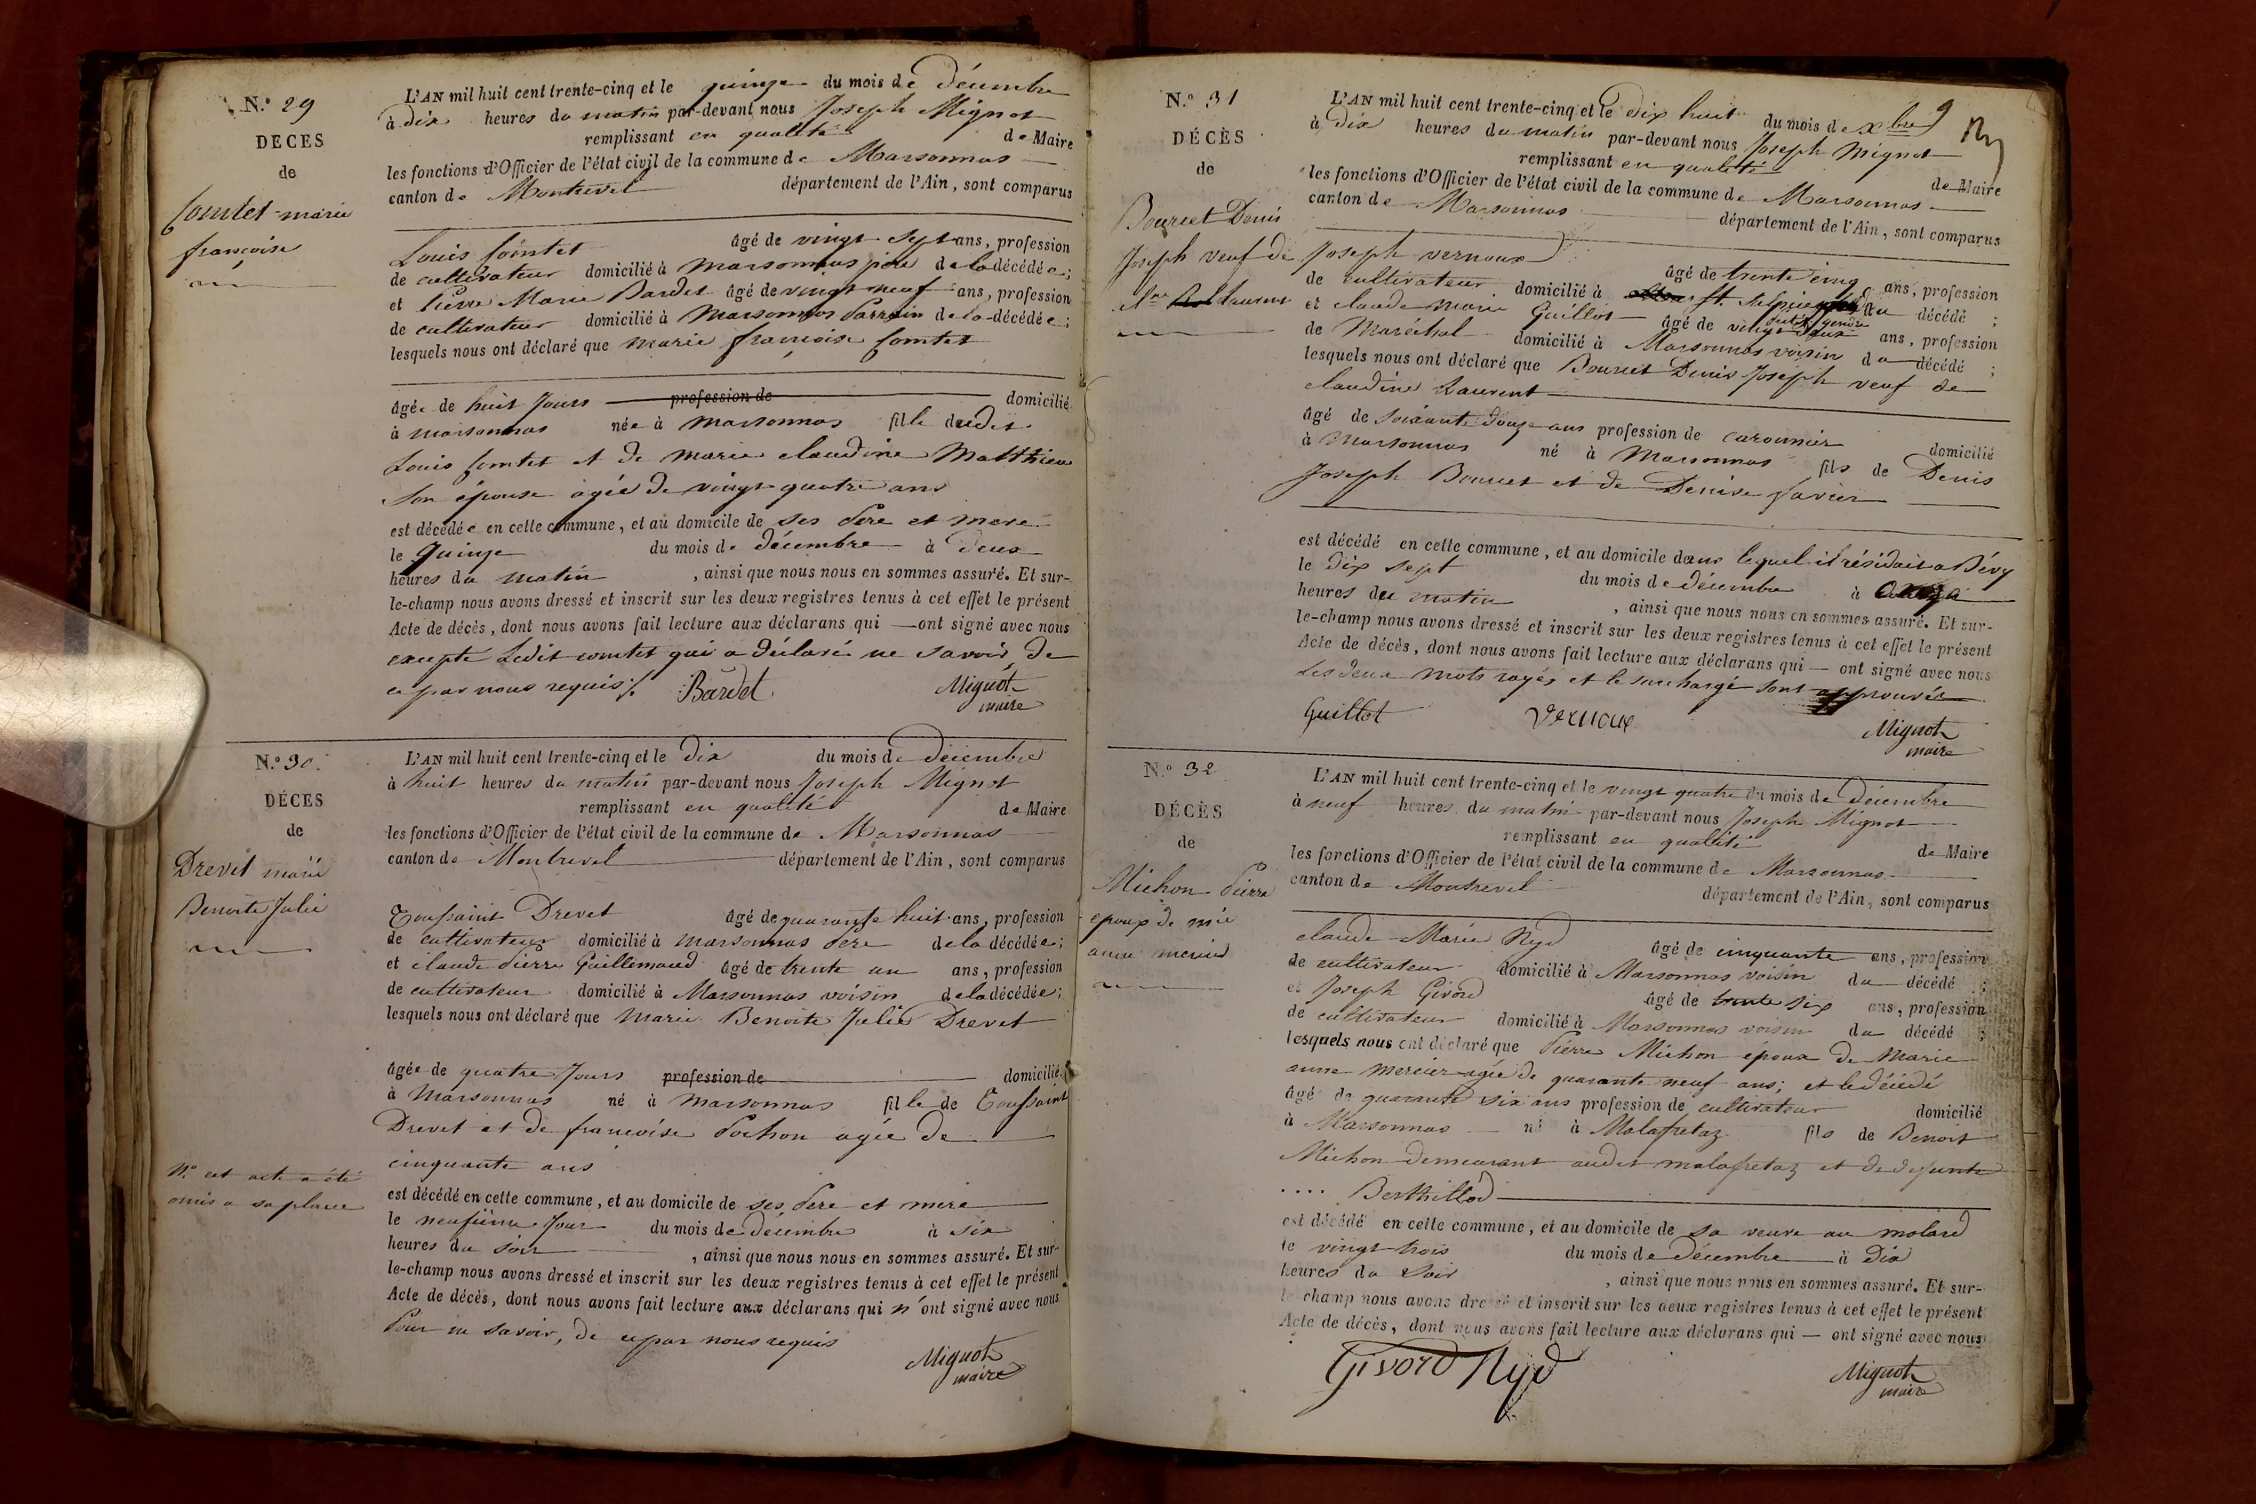 N.º 29
DECES
de
Comtet marie
françoise
L'AN mil huit cent trente-cinq et le quinze du mois de décembre
à dix heures du matin par-devant nous Joseph Mignot
remplissant en qualité de Maire
les fonctions d'Officier de l'état civil de la commune de Marsonnas
canton de Montrevel département de l'Ain, sont comparus
Louis Comtet âgé de vingt sept ans, profession
de cultivateur domicilié à Marsonnas père de la décédée;
et Pierre Marie Bardet âgé de vingt neuf ans, profession
de cultivateur domicilié à Marsonnas Parrain de la décédée;
lesquels nous ont déclaré que marie françoise Comtet
âgée de huit Jours profession de domicilié
à marsonnas née à marsonnas fille dudit
Louis Comtet et de marie claudine Matthieu
son épouse agée de vingt quatre ans
est décédée en cette commune, et au domicile de ses Père et mere
le Quinze du mois de décembre à deux
heures du matin , ainsi que nous nous en sommes assuré. Et sur-
le-champ nous avons dressé et inscrit sur les deux registres tenus à cet effet le présent
Acte de décès, dont nous avons fait lecture aux déclarans qui ont signé avec nous
excepté Ledit comtet qui a déclaré ne savoir, de
ce par nous requis.
Bardet Mignot
maire
N.º 30.
DÉCES
de
Drevet marie
Benoite Julie
L'AN mil huit cent trente-cinq et le dix du mois de décembre
à huit heures du matin par-devant nous Joseph Mignot
remplissant en qualité de Maire
les fonctions d'Officier de l'état civil de la commune de Marsonnas
canton de Montrevel département de l'Ain, sont comparus
Toussaint Drevet âgé de quarante huit ans, profession
de cultivateur domicilié à marsonnas Père de la décédée;
et claude Pierre Guillemaud âgé de trente un ans, profession
de cultivateur domicilié à Marsonnas voisin de la décédée;
lesquels nous ont déclaré que Marie Benoite Julie Drevet
âgée de quatre Jours profession de domicilié
à Marsonnas né à marsonnas fille de Toussaint
Drevet et de françoise Pochon agée de
cinquante ans
N.ª cet acte a été
omis a sa place
est décédé en cette commune, et au domicile de ses Père et mere
le neufième Jour du mois de décembre à six
heures du soir , ainsi que nous nous en sommes assuré. Et sur-
le-champ nous avons dressé et inscrit sur les deux registres tenus à cet effet le présent
Acte de décès, dont nous avons fait lecture aux déclarans qui n'ont signé avec nous
Pour ne savoir, de ce par nous requis
Mignot
maire
9
N.º 31
DÉCÈS
de
Bourcet Denis
Joseph veuf de
Laurent
L'AN mil huit cent trente-cinq et le dix huit du mois de Xbre
à dix heures du matin par-devant nous Joseph Mignot
remplissant en qualité de Maire
les fonctions d'Officier de l'état civil de la commune de Marsonnas
canton de Marsonnas département de l'Ain, sont comparus
Joseph vernoux âgé de trente cinq ans, profession
de cultivateur domicilié à St. Sulpice du décédé;
et claude marie Guillot âgé de vingt deux ans, profession
de Maréchal domicilié à Marsonnas voisin du décédé;
lesquels nous ont déclaré que Bourcet Denis Joseph veuf de
claudine Laurent
âgé de soixante douze ans profession de domicilié
à Marsonnas né à Marsonnas fils de Denis
Joseph Bourcet et de Denise favier
est décédé en cette commune, et au domicile dans lequel il résidait a Bévy
le dix sept du mois de décembre à
heures du matin , ainsi que nous nous en sommes assuré. Et sur-
le-champ nous avons dressé et inscrit sur les deux registres tenus à cet effet le présent
Acte de décès, dont nous avons fait lecture aux déclarans qui ont signé avec nous
Les deux mots rayés et le surchargé sont approuvés
Guillot vernoux Mignot
maire
N.º 32
DÉCÈS
de
Michon Pierre
epoux de mie
anne mercier
L'AN mil huit cent trente-cinq et le vingt quatre du mois de décembre
à neuf heures du matin par-devant nous Joseph Mignot
remplissant en qualité de Maire
les fonctions d'Officier de l'état civil de la commune de Marsonnas
canton de Montrevel département de l'Ain, sont comparus
claude Marie Nyd âgé de cinquante ans, profession
de cultivateur domicilié à Marsonnas voisin du décédé;
et Joseph Givord âgé de trente six ans, profession
de cultivateur domicilié à Marsonnas voisin du décédé;
lesquels nous ont déclaré que Pierre Michon époux de Marie
anne mercier agée de quarante neuf ans; et le décédé
âgé de quarante six ans profession de cultivateur domicilié
à Marsonnas né à Malafretaz fils de Benoit
Michon demeurant audit malafretaz et de defunte
.... Berthillod
est décédé en cette commune, et au domicile de sa veuve au molard
le vingt trois du mois de décembre à dix
heures du soir , ainsi que nous nous en sommes assuré. Et sur-
le-champ nous avons dressé et inscrit sur les deux registres tenus à cet effet le présent
Acte de décès, dont nous avons fait lecture aux déclarans qui ont signé avec nous
Givord Nyd Mignot
maire